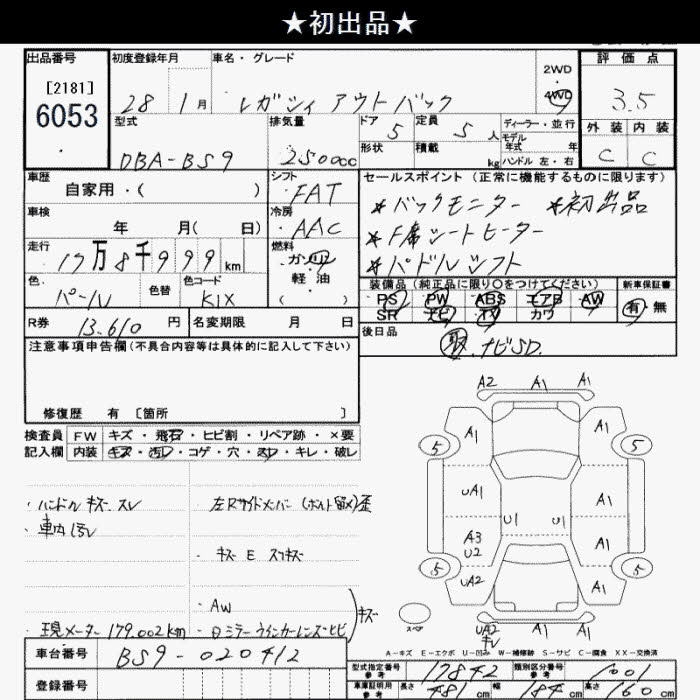 ★初出品★
出品番号 初度登録年月 車名・グレード 2WD 4WD 評価点
[2181]
6053
28 1月 レガシィ アウトバック 3.5
型式 排気量 ドア 5 定員 5人 ディーラー・並行 外装 内装
形状 積載 kg モデル年式 年
ハンドル 左・右
DBA-BS9 2500cc C C
車歴 シフト セールスポイント (正常に機能するものに限ります)
自家用・( ) FAT
*バックモニター *初出品
車検 冷房
年 月( 日) AAC
*F席シートヒーター
走行 燃料
17万8千999km ガソリン
*パドルシフト
色 色替 色コード 軽油
パール K1X ( )
装備品 (純正品に限り○をつけてください) 新車保証書
PS PW ABS エアB AW 有・無
SR ナビ TV カワ
R券 13,610円 名変期限 月 日
後日品
取 ナビSD.
注意事項申告欄(不具合内容等は具体的に記入して下さい)
修復歴 有 〔箇所 〕
検査員 FW キズ・飛石・ヒビ割・リペア跡・×要
記入欄 内装 キズ・汚レ・コゲ・穴・スレ・キレ・破レ
A2 A1 A1
A1 A1
5 5
UA1 A1
U1 U1
A3 A1
U2
5 5
UA2 A1
UA2 A1 A1
キレ
スペア
・ハンドル キズ スレ
・車内汚レ
・現メーター 179,002km
左Rサイドメンバー (ボルト留メ)歪
・キズ E スリキズ
・AW
・ドミラーウインカーレンズヒビ
キズ
A-キズ E-エクボ U-凹み W-補修跡 S-サビ C-腐食 XX-交換済
車台番号 BS9-020412
登録番号
型式指定番号 参考 17842 類別区分番号 参考 1001
車庫証明用 参考 長さ 481cm 幅 184cm 高さ 160cm